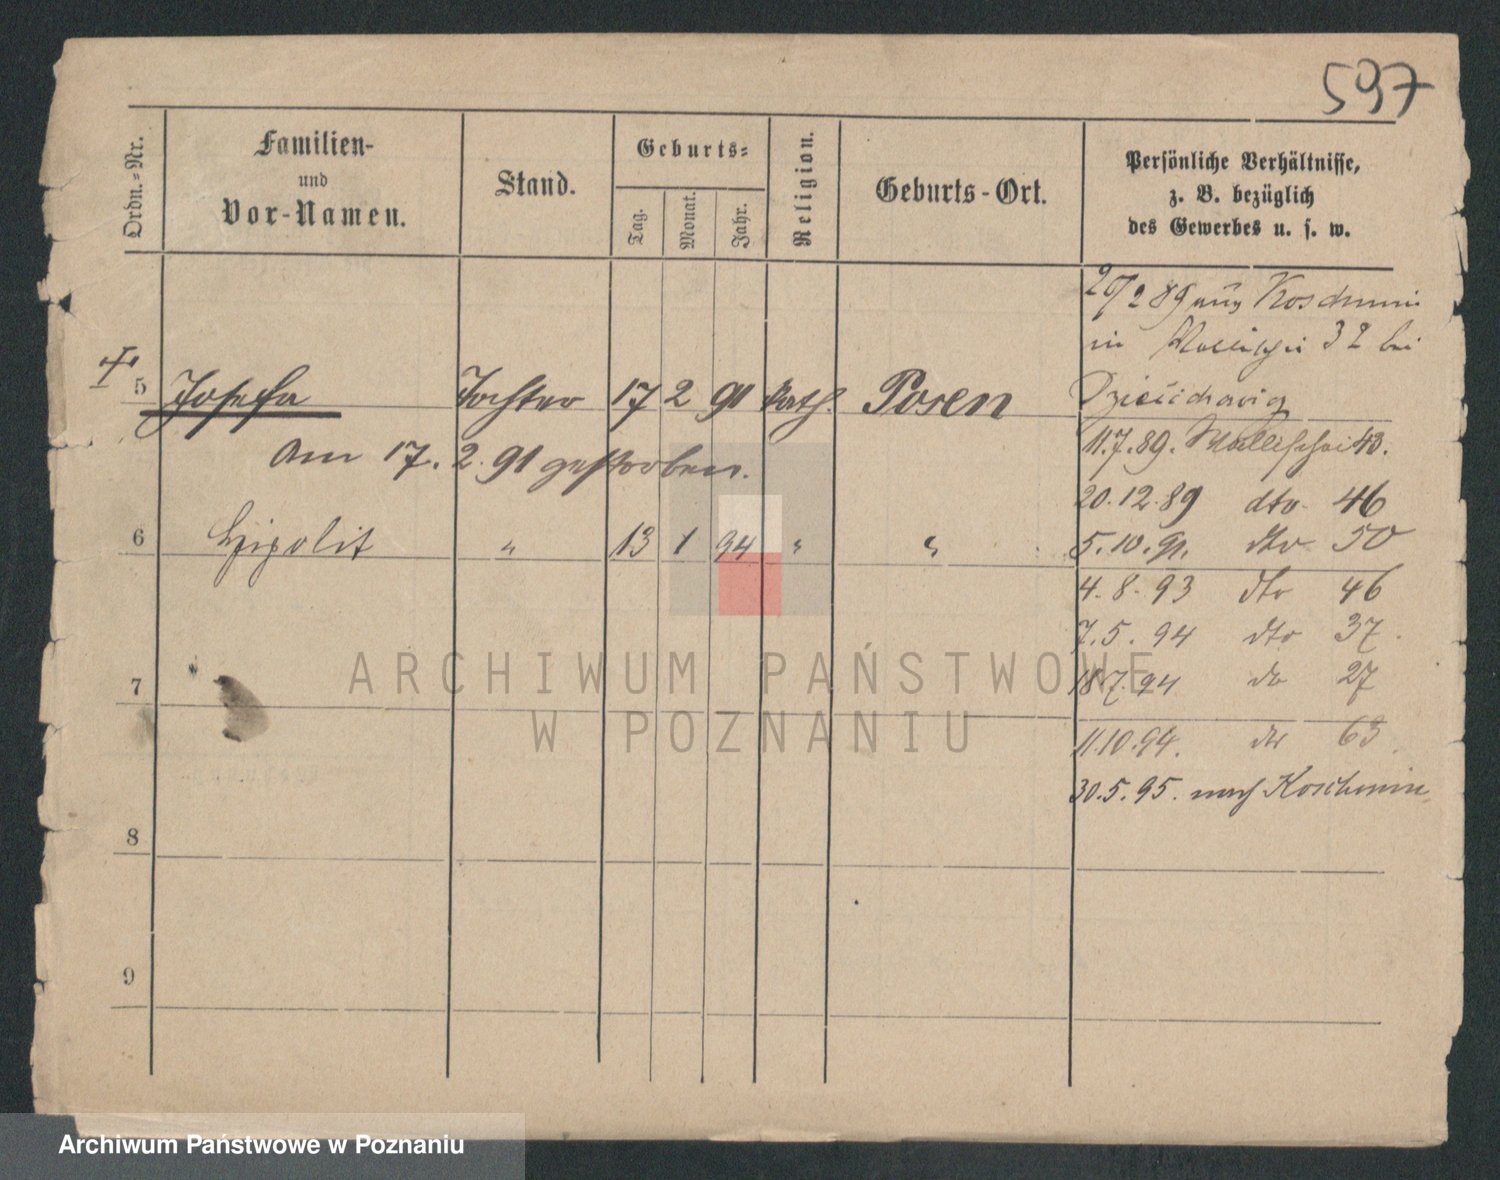 597
Ordn.-Nr.
Familien-
und
Vor-Namen.
Stand.
Geburts-
Tag.
Monat.
Jahr.
Religion.
Geburts-Ort.
Persönliche Verhältnisse,
z. B. bezüglich
des Gewerbes u. s. w.
20/2 89 aus Koschmin
in Wallischei 32 bei
5 Josefa Tochter 17 2 91 kath. Posen
am 17. 2. 91 gestorben.
11.7.89. Wallischei 43.
20.12.89 dto. 46
6 Hipolit " 13 1 94 " "
5.10.91. dto 50
4. 8. 93 dto 46
7. 5. 94 dto 37.
7
18.7.94 do 27
11.10.94. dto 63.
30.5.95. nach Koschmin
8
9
ARCHIWUM PAŃSTWOWE
W POZNANIU
Archiwum Państwowe w Poznaniu